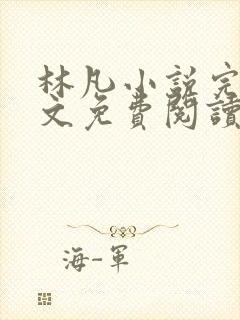 林凡小說完
文免費閱讀
海-軍